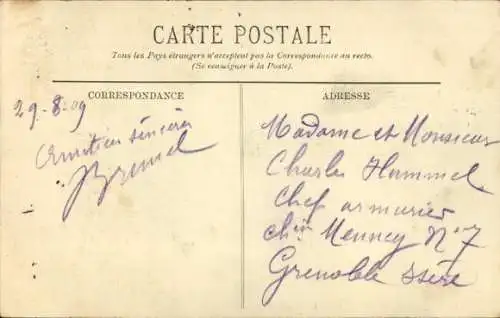 CARTE POSTALE
Tous les Pays étrangers n'acceptent pas la Correspondance au recto.
(Se renseigner à la Poste).
CORRESPONDANCE
29-8-09
Amitiés sincères
ADRESSE
Madame et Monsieur
Charles Hummel
Chef armurier
chin Menney N° 7
Grenoble Isère